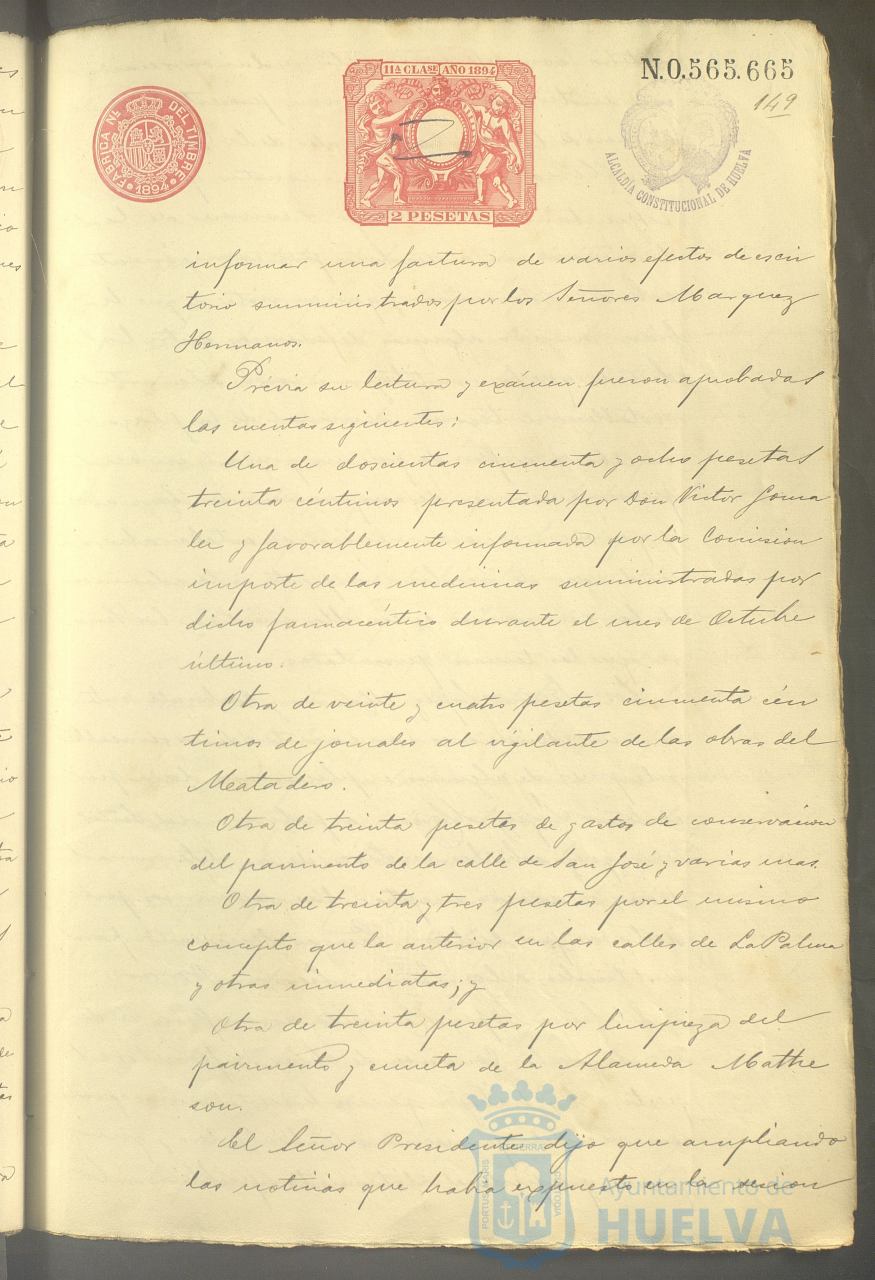 FABRICA NAL. DEL TIMBRE
1894
11ª CLASE AÑO 1894
2 PESETAS
N.0.565.665
149
ALCALDÍA CONSTITUCIONAL DE HUELVA
informar una factura de varios efectos de escri
torio sumministrados por los Señores Marquez
Hermanos.
Prévia su lectura y exámen fueron aprobadas
las cuentas siguientes:
Una de doscientas cincuenta y ocho pesetas
treinta céntimos presentada por Don Victor Goma
ler y favorablemente informada por la Comision
importe de las medicinas suministradas por
dicho farmacéutico durante el mes de Octubre
último.
Otra de veinte y cuatro pesetas cincuenta cén
timos de jornales al vigilante de las obras del
Matadero.
Otra de treinta pesetas de gastos de conservacion
del pavimento de la calle de San José y varias mas.
Otra de treinta y tres pesetas por el mismo
concepto que la anterior en las calles de La Palma
y otras inmediatas; y
Otra de treinta pesetas por limpieza del
pavimento y cuneta de la Alameda Mathe
son.
El Señor Presidente dijo que ampliando
las noticias que habia expuesto en la sesion
Ayuntamiento de
HUELVA